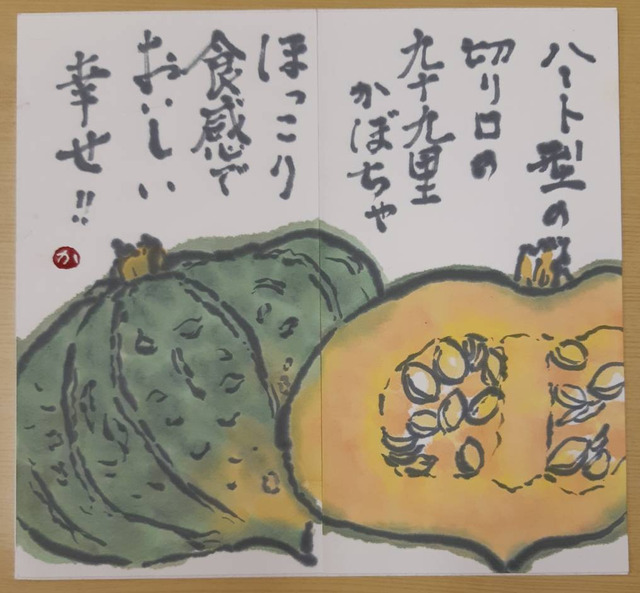 ハート型の
切り口の
九十九里
かぼちゃ
ほっこり
食感で
おいしい
幸せ!!
か